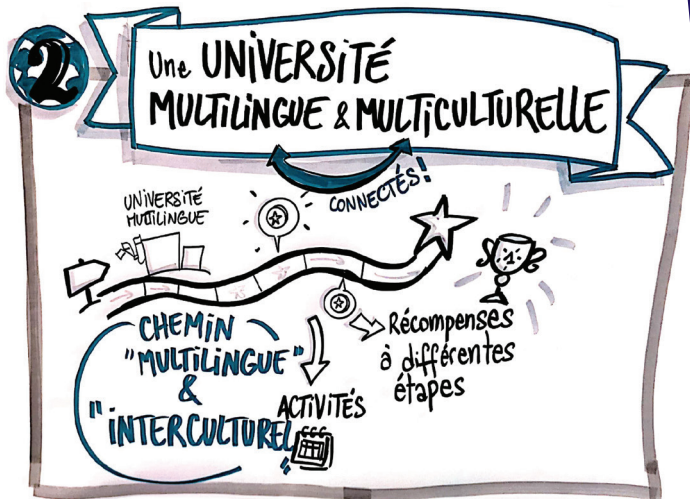 2
Une UNIVERSITÉ
MULTILINGUE & MULTICULTURELLE
CONNECTÉS!
UNIVERSITÉ
MULTILINGUE
CHEMIN
"MULTILINGUE"
&
"INTERCULTUREL"
ACTIVITÉS
Récompenses
à différentes
étapes